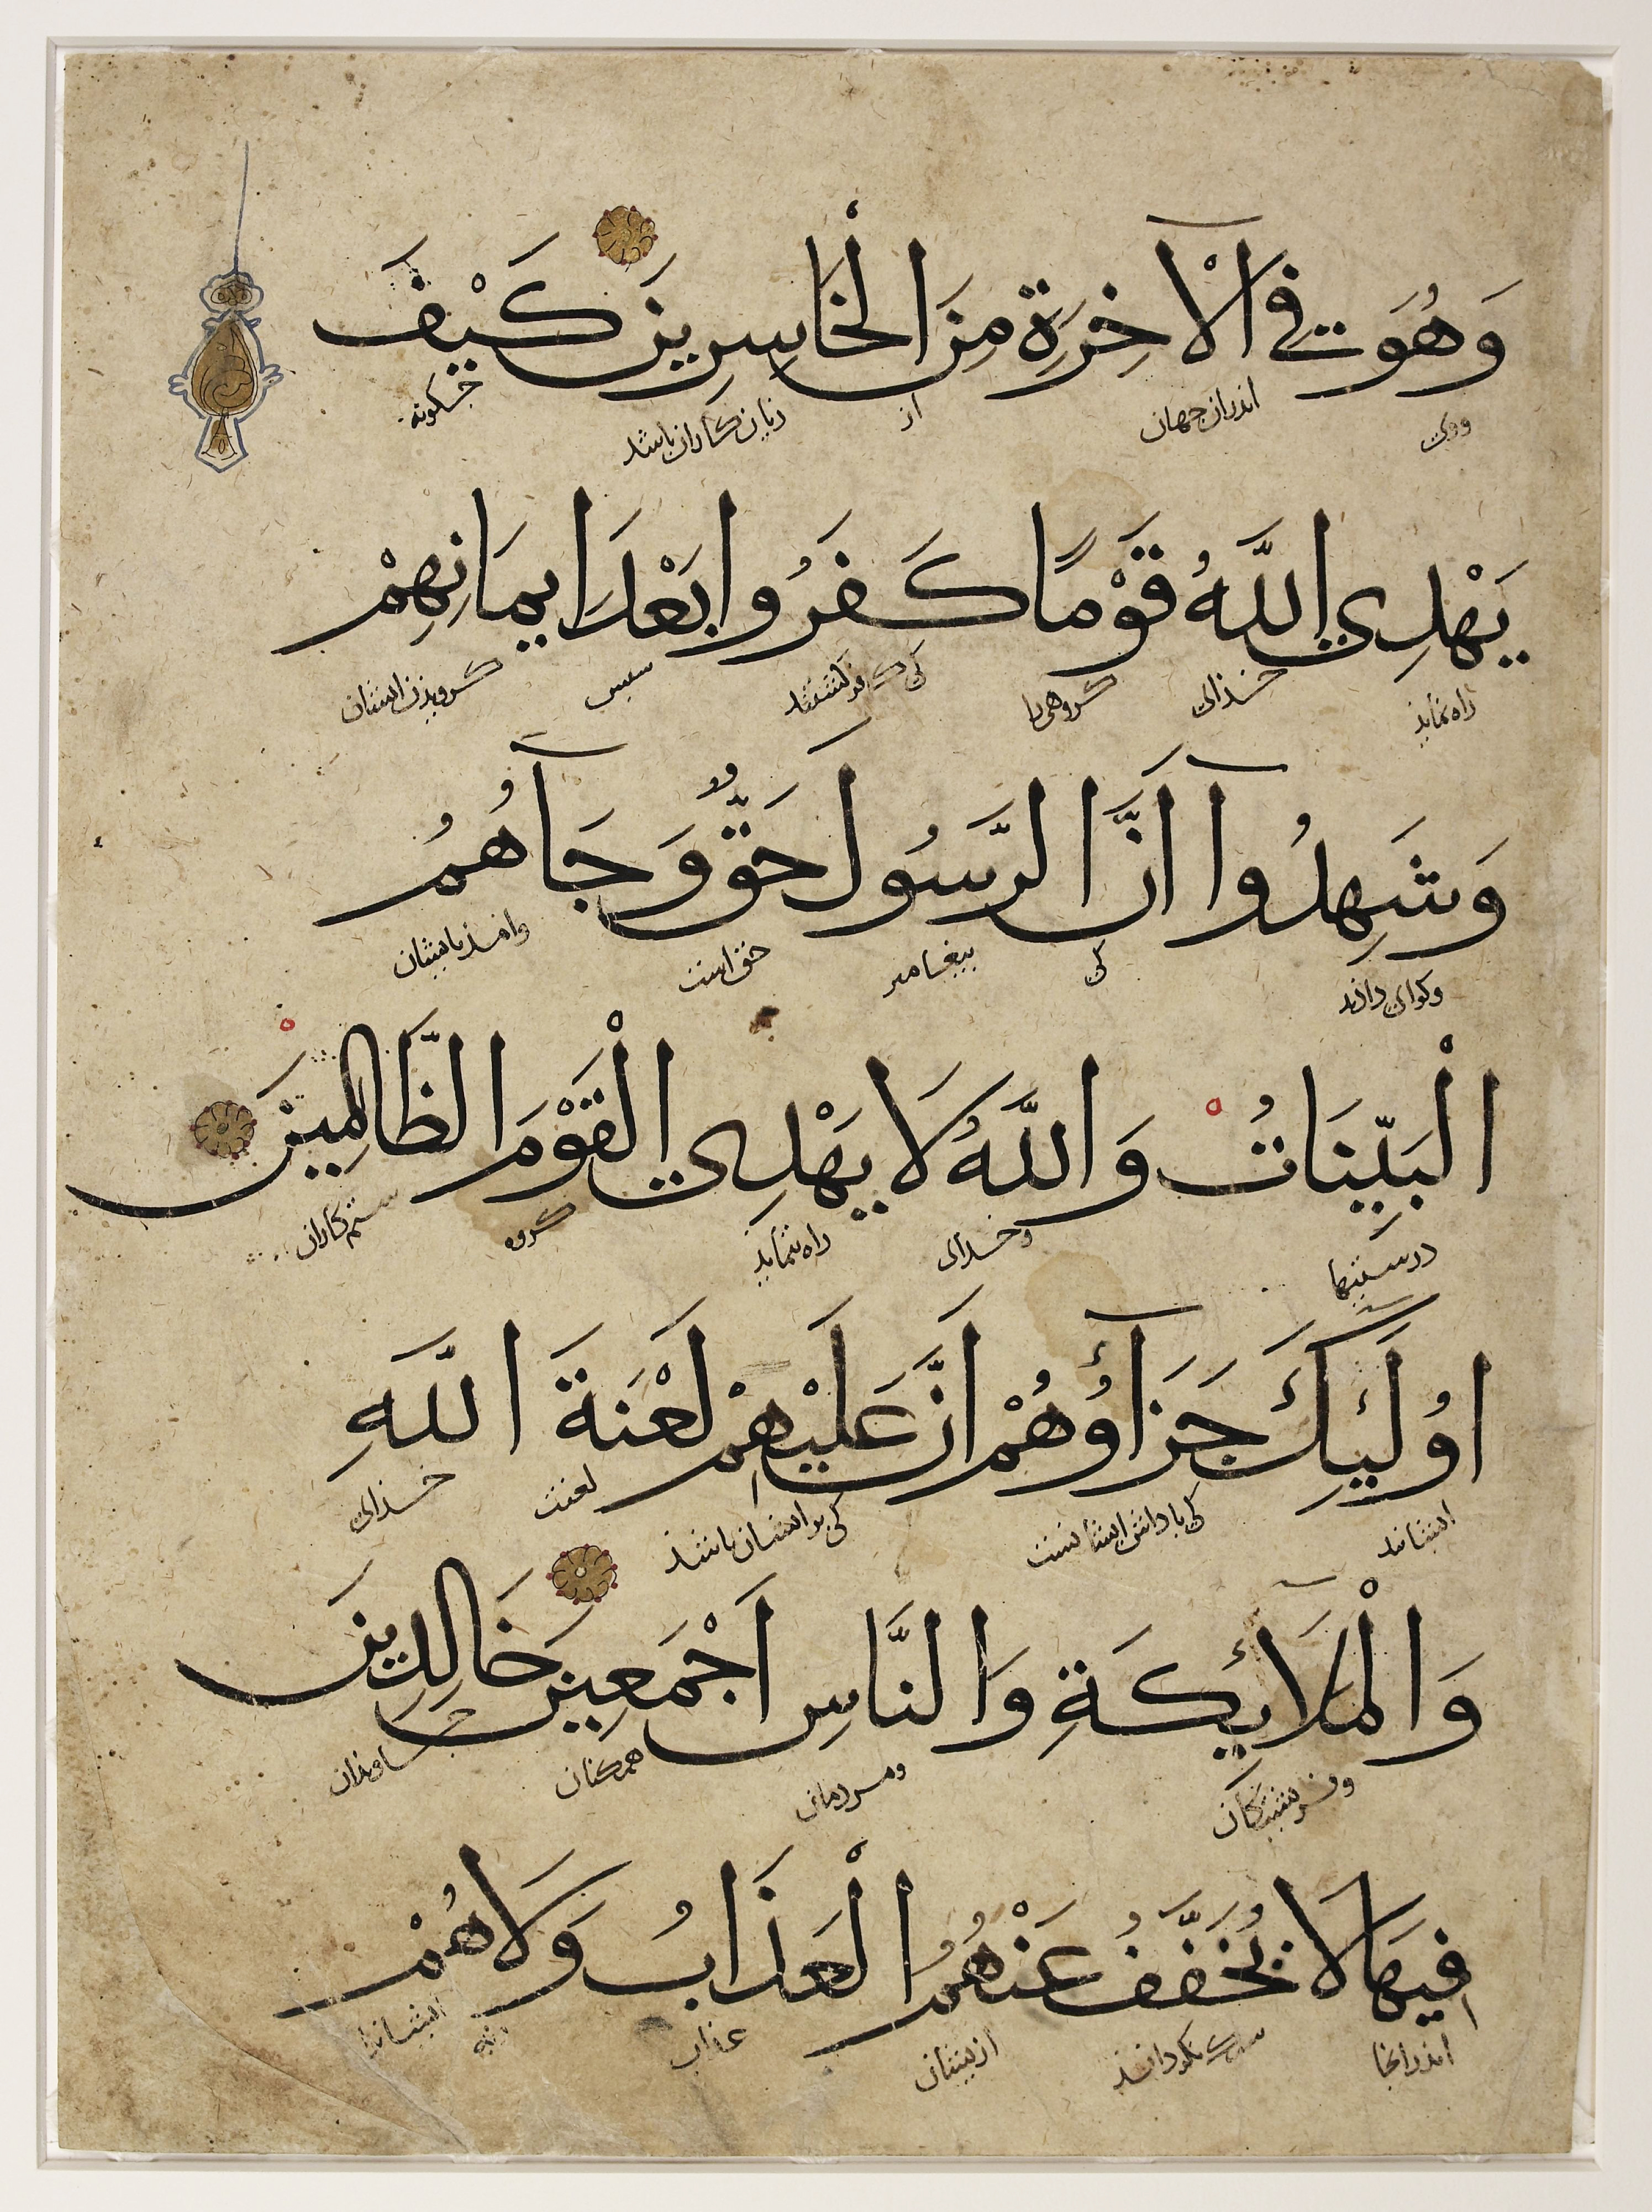 وَهُوَ فِي الْآخِرَةِ مِنَ الْخَاسِرِينَ كَيْفَ
ووی اندران جهان از زیان کاران باشد چکونه
يَهْدِي اللَّهُ قَوْمًا كَفَرُوا بَعْدَ اِيمَانِهِمْ
راه نماید خذای کروهی را کی کافر کشتند سپس کرویذن ایشان
وَشَهِدُوآ اَنَّ الرَّسُولَ حَقٌّ وَجَآهُمُ
وکوای داذند کی پیغامبر حق است وامذ بایشان
الْبَيِّنَاتُ وَاللَّهُ لَا يَهْدِي الْقَوْمَ الظَّالِمِيْنَ
درستیها وخذای راه ننماید کروه ستم کاران
اُولَٰئِكَ جَزَآؤُهُمْ اَنَّ عَلَيْهِمْ لَعْنَةَ اللَّهِ
ایشانند کی باداش ایشانست کی بر ایشان باشذ لعنت خذای
وَالْمَلَآئِكَةِ وَالنَّاسِ اَجْمَعِينَ خَالِدِينَ
وفریشتکان ومردمان همکنان جاویذان
فِيهَا لَا يُخَفَّفُ عَنْهُمُ الْعَذَابُ وَلَا هُمْ
اندرانجا سبک نکردانند ازیشان عذاب ونه ایشانند